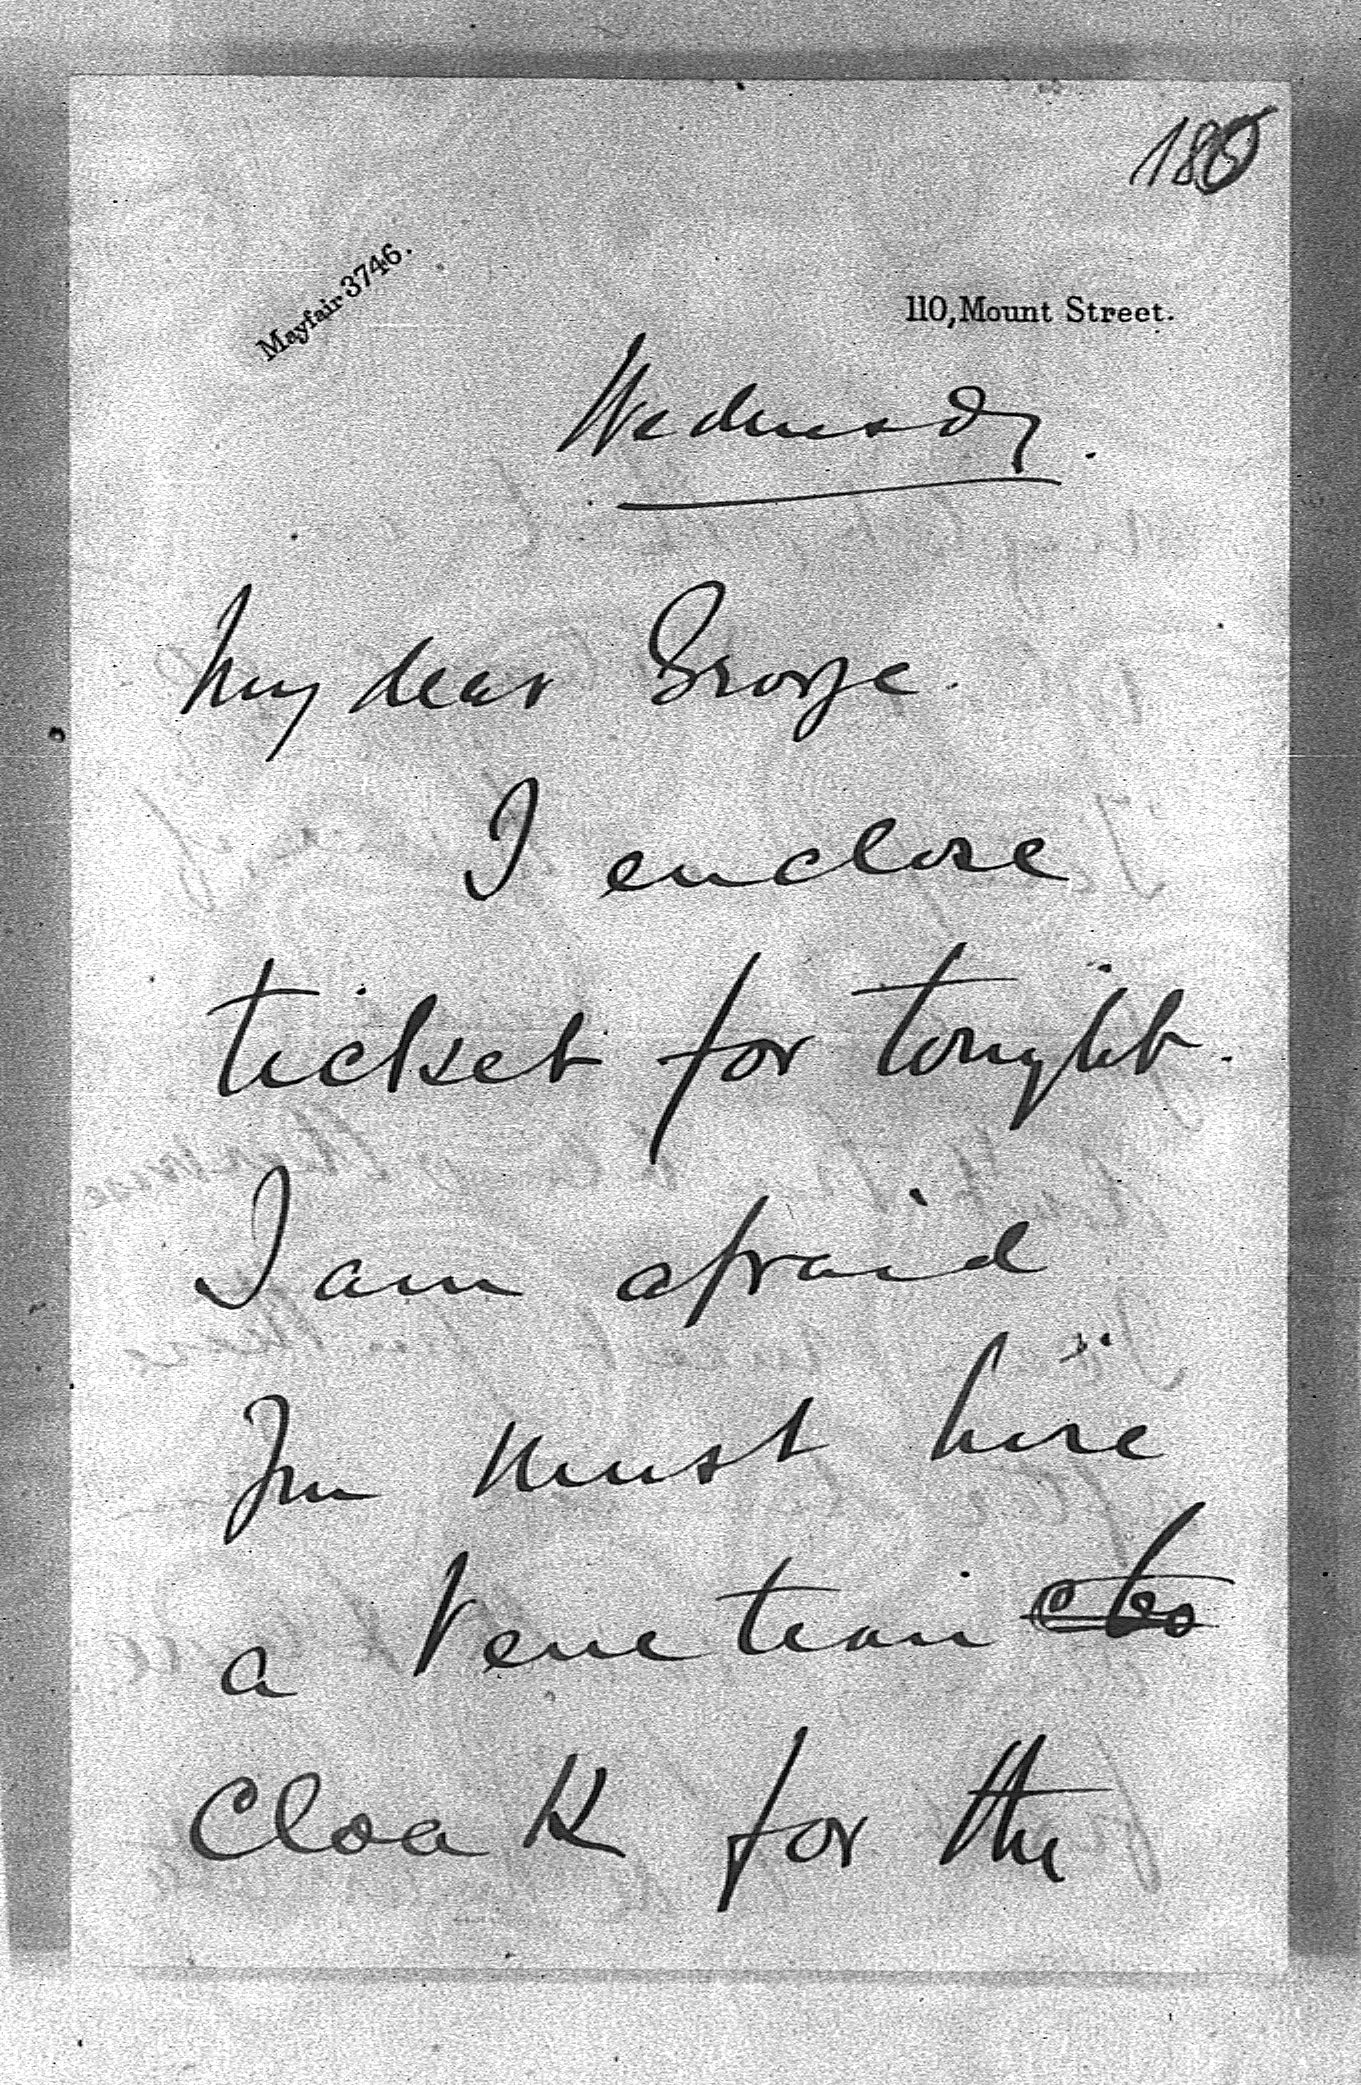 180
Mayfair 3746.
110, Mount Street.
Wednesday.
My dear George.
I enclose
ticket for tonight.
I am afraid
you must hire
a Venetian
Cloak for the